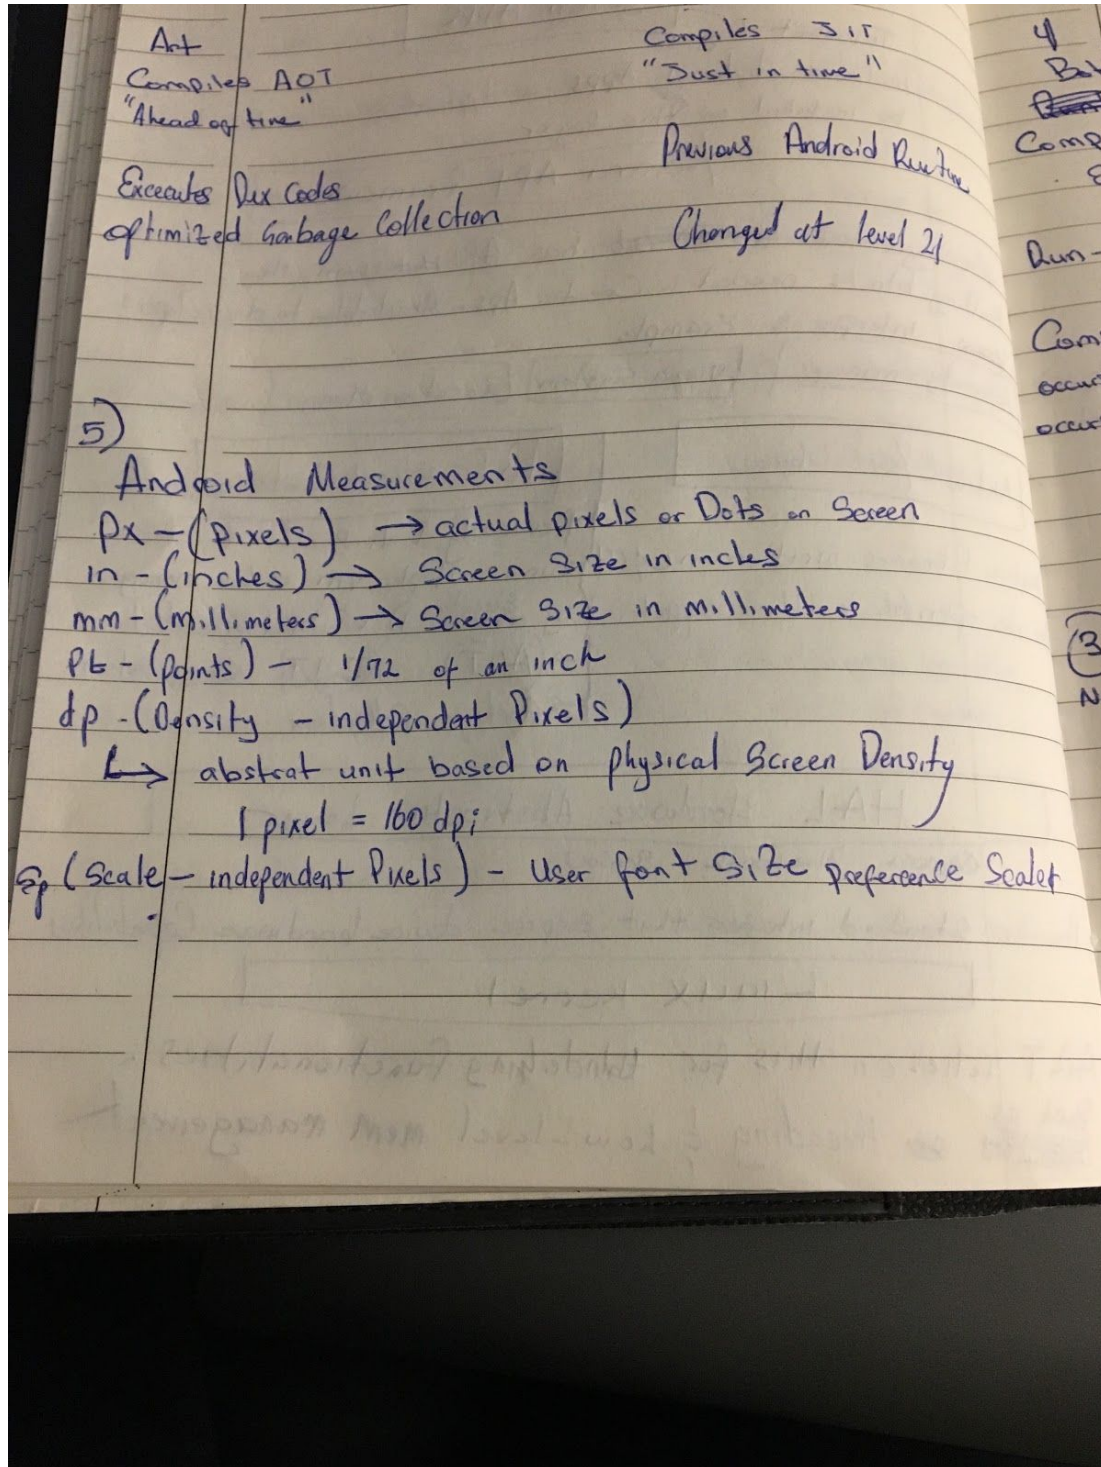 Art
Compiles AOT
"Ahead of time"
Excecutes Dex Codes
optimized Garbage Collection
Compiles JIT
"Just in time"
Previous Android Runtime
Changed at level 21
5)
Android Measurements
px - (pixels) → actual pixels or Dots on Screen
in - (inches) → Screen Size in inches
mm - (millimeters) → Screen Size in millimeters
pt - (points) - 1/72 of an inch
dp - (Density - independent Pixels)
↳ abstrat unit based on physical Screen Density
1 pixel = 160 dpi
Sp (Scale - independent Pixels) - User font Size preference Scaler
4
Comp
Run-
Com
occur
occur
3
N